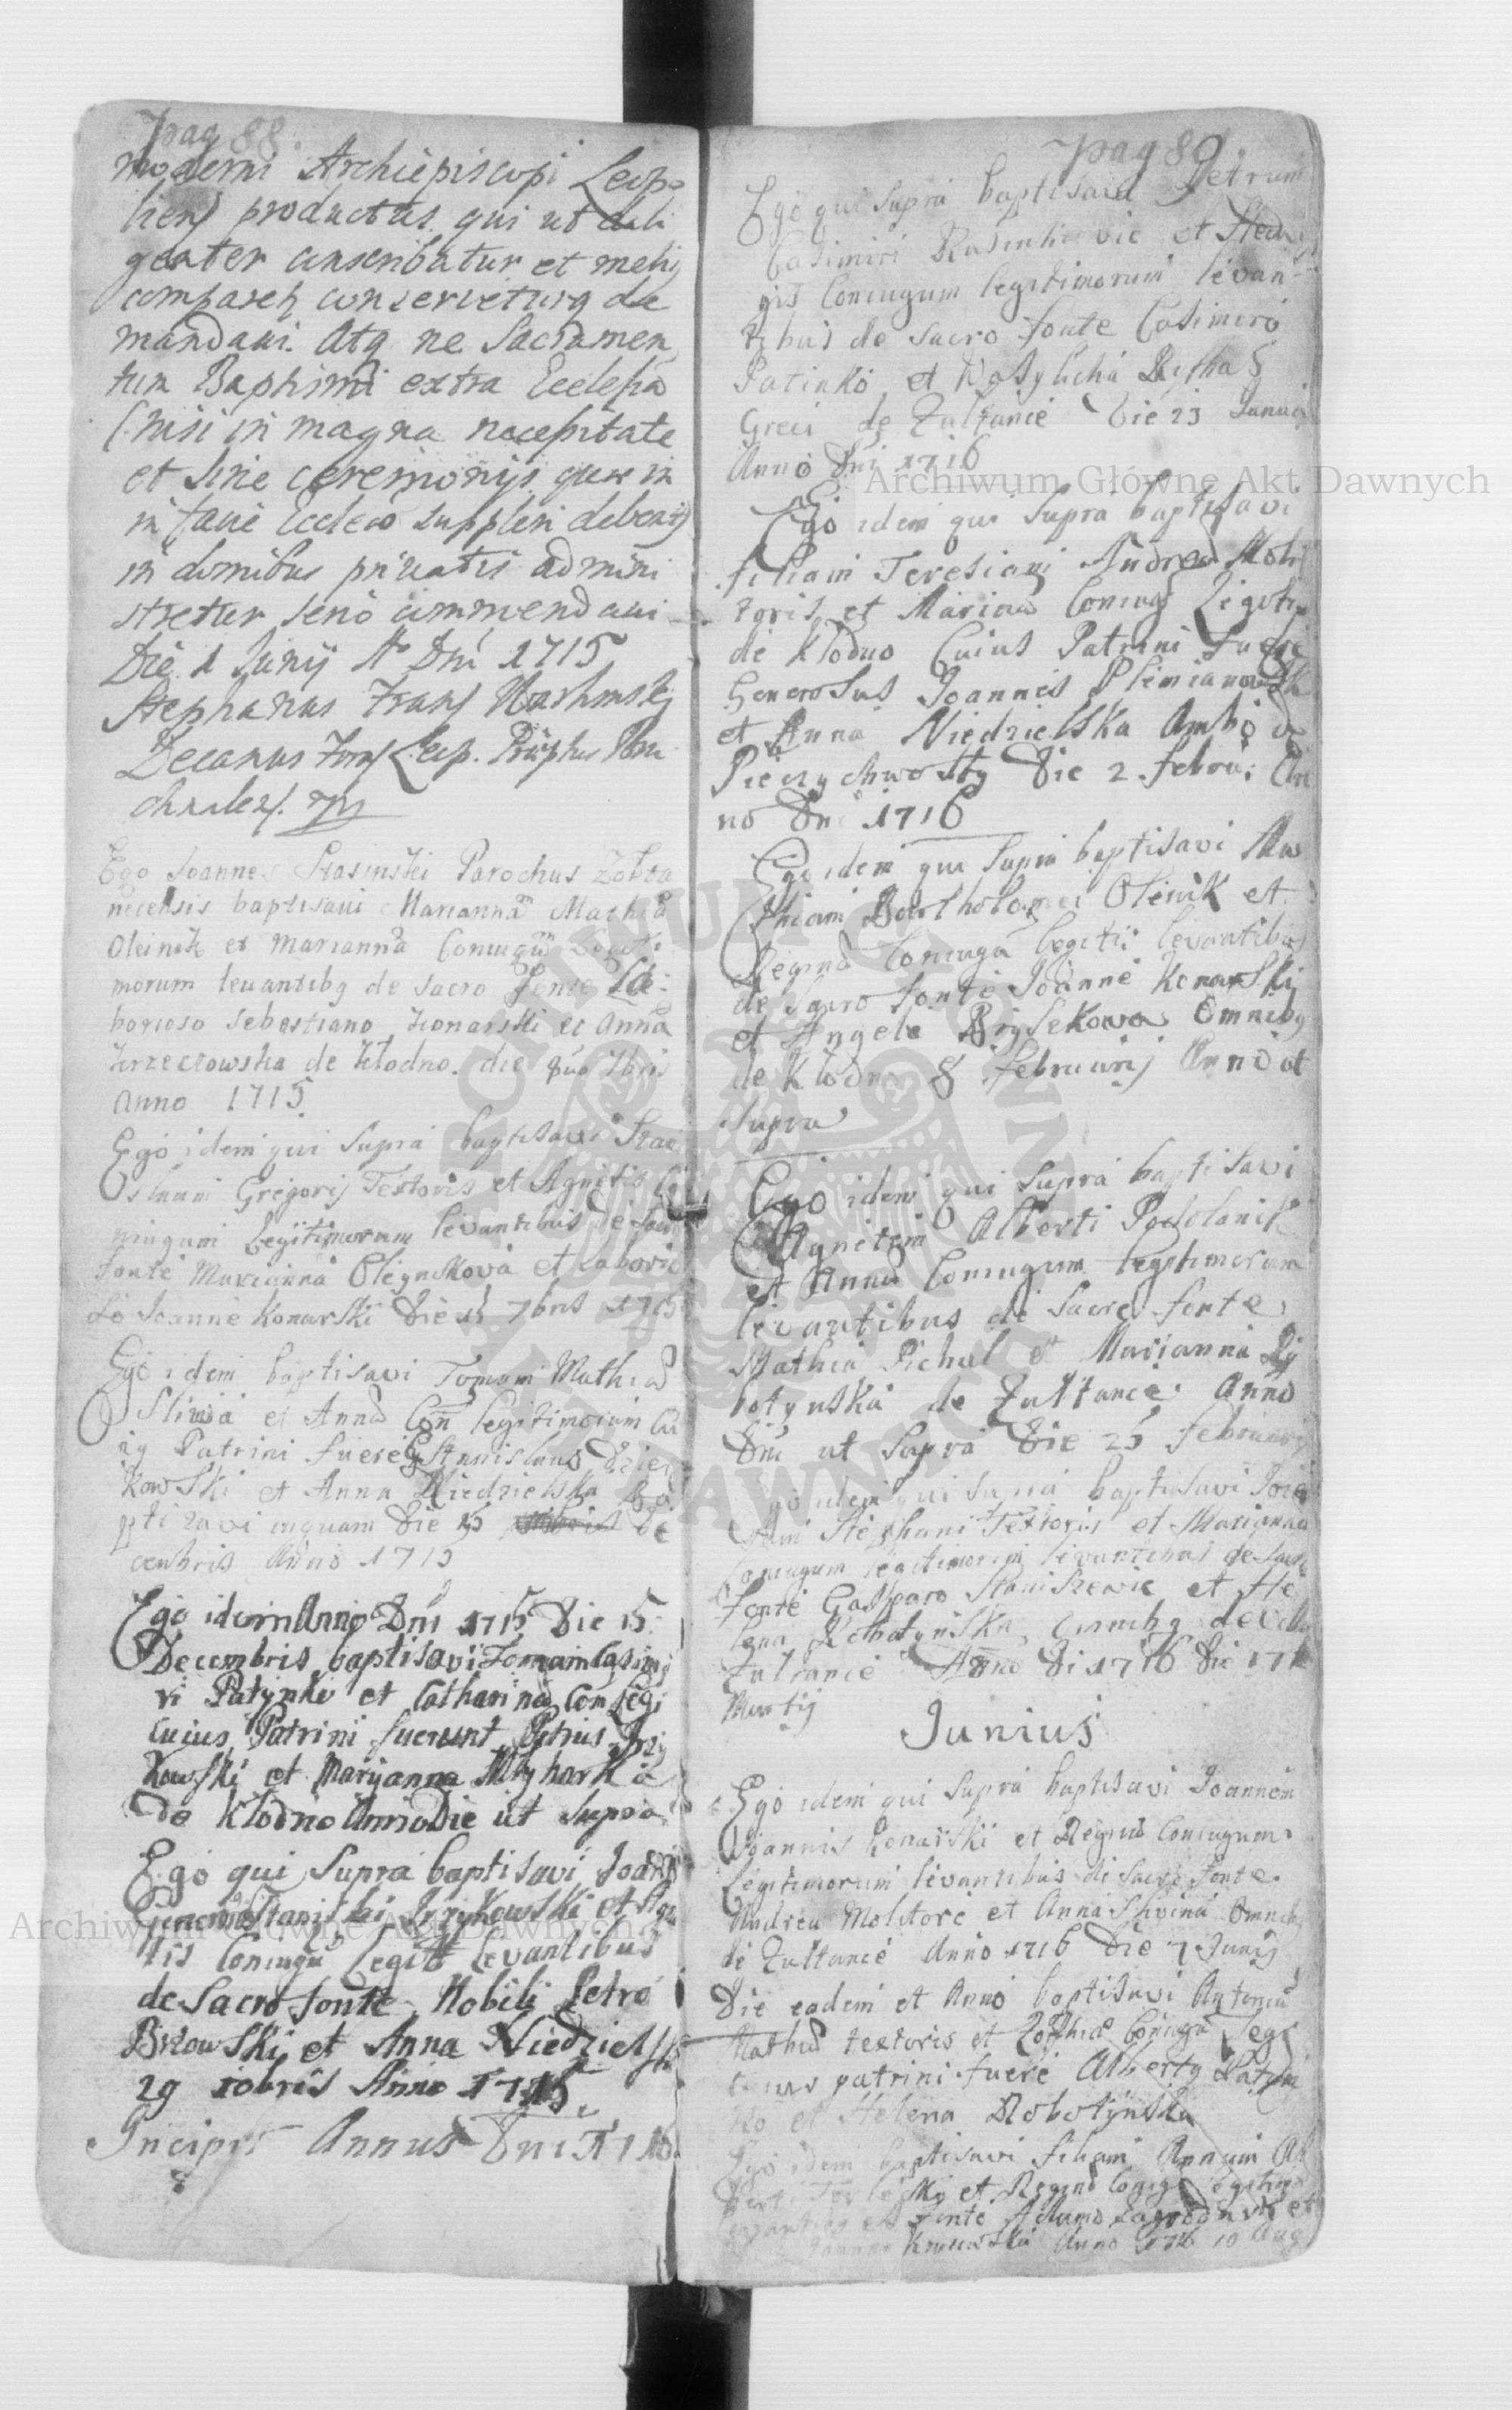 pag 88.
moderni Archiepiscopi Leop
liens productus qui ut dili
genter conscribatur et meliq
comparetq conserveturq de
mandavi. Atq ne Sacramen
tum Baptismi extra Ecclesia
(nisi in magna necessitate
et sine ceremonijs quae in
in facie Ecclesiae suppleri debent)
in domibus privatis admini
stretur serio commendavi
Die 1 Junij Ao Dni 1715
Stephanus Franc
Decanus Leop.
Ego Joannes Stasinski Parochus Zolta
necensis baptisavi Mariannam Mathia
Oleinik et Marianna Coniugum Legiti
morum levantibq de Sacro Fonte La
borioso Sebastiano Konarski et Anna
Krzeczowska de Kłodno. die 7bris
Anno 1715
Ego idem qui Supra baptisavi Stani
slaum Gregorij Textoris et Agnetis Co
niugum Legitimorum levantibus de Sacro
fonte Marianna Oleynikova et Laborio
so Joanne Konarski Die 7bris 1715
Ego idem baptisavi Tomam Mathiae
Sliwa et Annae Con legitimorum Cu
ig Patrini fuere G Stanislaus Dzier
kowski et Anna Niedzielska Ba
ptizavi inquam Die 15 De
cembris Anno 1715
Ego idem Anno Dni 1715 Die 15
Decembris baptisavi Tomam Casimi
ri Patynko et Catharinae Con Legi
cuius Patrini fuerunt Petrus
kowski et Maryanna Mlynarka
de Kłodno Anno Die ut Supra
Ego qui Supra baptisavi
Generosi Stanislai et Agne
tis Coniugu Legitt Levantibus
de Sacro fonte Nobili Petro
Brzowski et Anna Niedzielska
29 10bris Anno 1715
Incipit Annus Dni 1716
pag 89
Ego qui Supra baptisavi Petrum
Casimiri et Hedvi
gis Coniugum legitimorum levan
tibus de Sacro fonte Casimiro
Patinko et Wasylicha
Greci de Zultance Die 23 Januarij
Anno Dni 1716
Ego idem qui Supra baptisavi
filiam Teresiam Andreae Moli
toris et Marinae Coniug Legiti
de Kłodno Cuius Patrini Fuere
Generosus Joannes Plemianowsk
et Anna Niedzielska Ambo de
Pieczychwosty Die 2 febru: An
no Dni 1716
Ego idem qui Supra baptisavi Ma
thiam Bartholomei Oleinik et
Regina Coniugu legiti: levantibus
de Sacro fonte Joanne Konarski
et Angela Omnibq
de Kłodno 8 februarij Anno ut
Supra
Ego idem qui Supra baptisavi
Agnetem Alberti Podolanik
et Annae Coniugum Legitimorum
levantibus de Sacro fonte
Mathia Pichul et Marianna Ry
botynska de Zultance Anno
Dni ut Supra Die 25 februarij
Ego idem qui supra baptisavi Jose
phum Stephani Textoris et Marianna
Coniugum legitimorum levantibus de Sacro
fonte Gasparo Staniszewic et He
lena omnibq de
Zultance Anno Di 1716 Die 17
Martij
Junius
Ego idem qui Supra baptisavi Joannem
Joannis Konarski et Reginae Coniugum
Legitimorum levantibus de Sacro fonte
Andrea Molitore et Anna Slivina Omnibq
de Zultance Anno 1716 Die 7 Junij
Die eadem et Anno baptisavi Antoniu
Mathiae textoris et Zophiae Coniugu Legi
cuius patrini fuere Albertq Patyn
ko et Helena Robotynska
Ego idem baptisavi filiam Annam Al
berti et Reginae Coniug legitimo
levantibq ex fonte Adamo Zagrodnik et
Joanna Anno 1716 10 Aug
Archiwum Główne Akt Dawnych
Archiwum Główne Akt Dawnych
ARCHIWUM GŁÓWNE AKT DAWNYCH